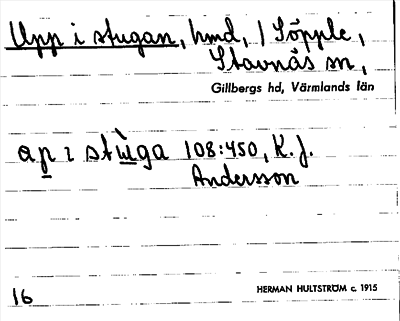 Upp i stugan, hmd, / Söpple,
Stavnäs sn,
Gillbergs hd, Värmlands län
ap ı stùga 108:450, K.J.
Andersson
16
HERMAN HULTSTRÖM c. 1915